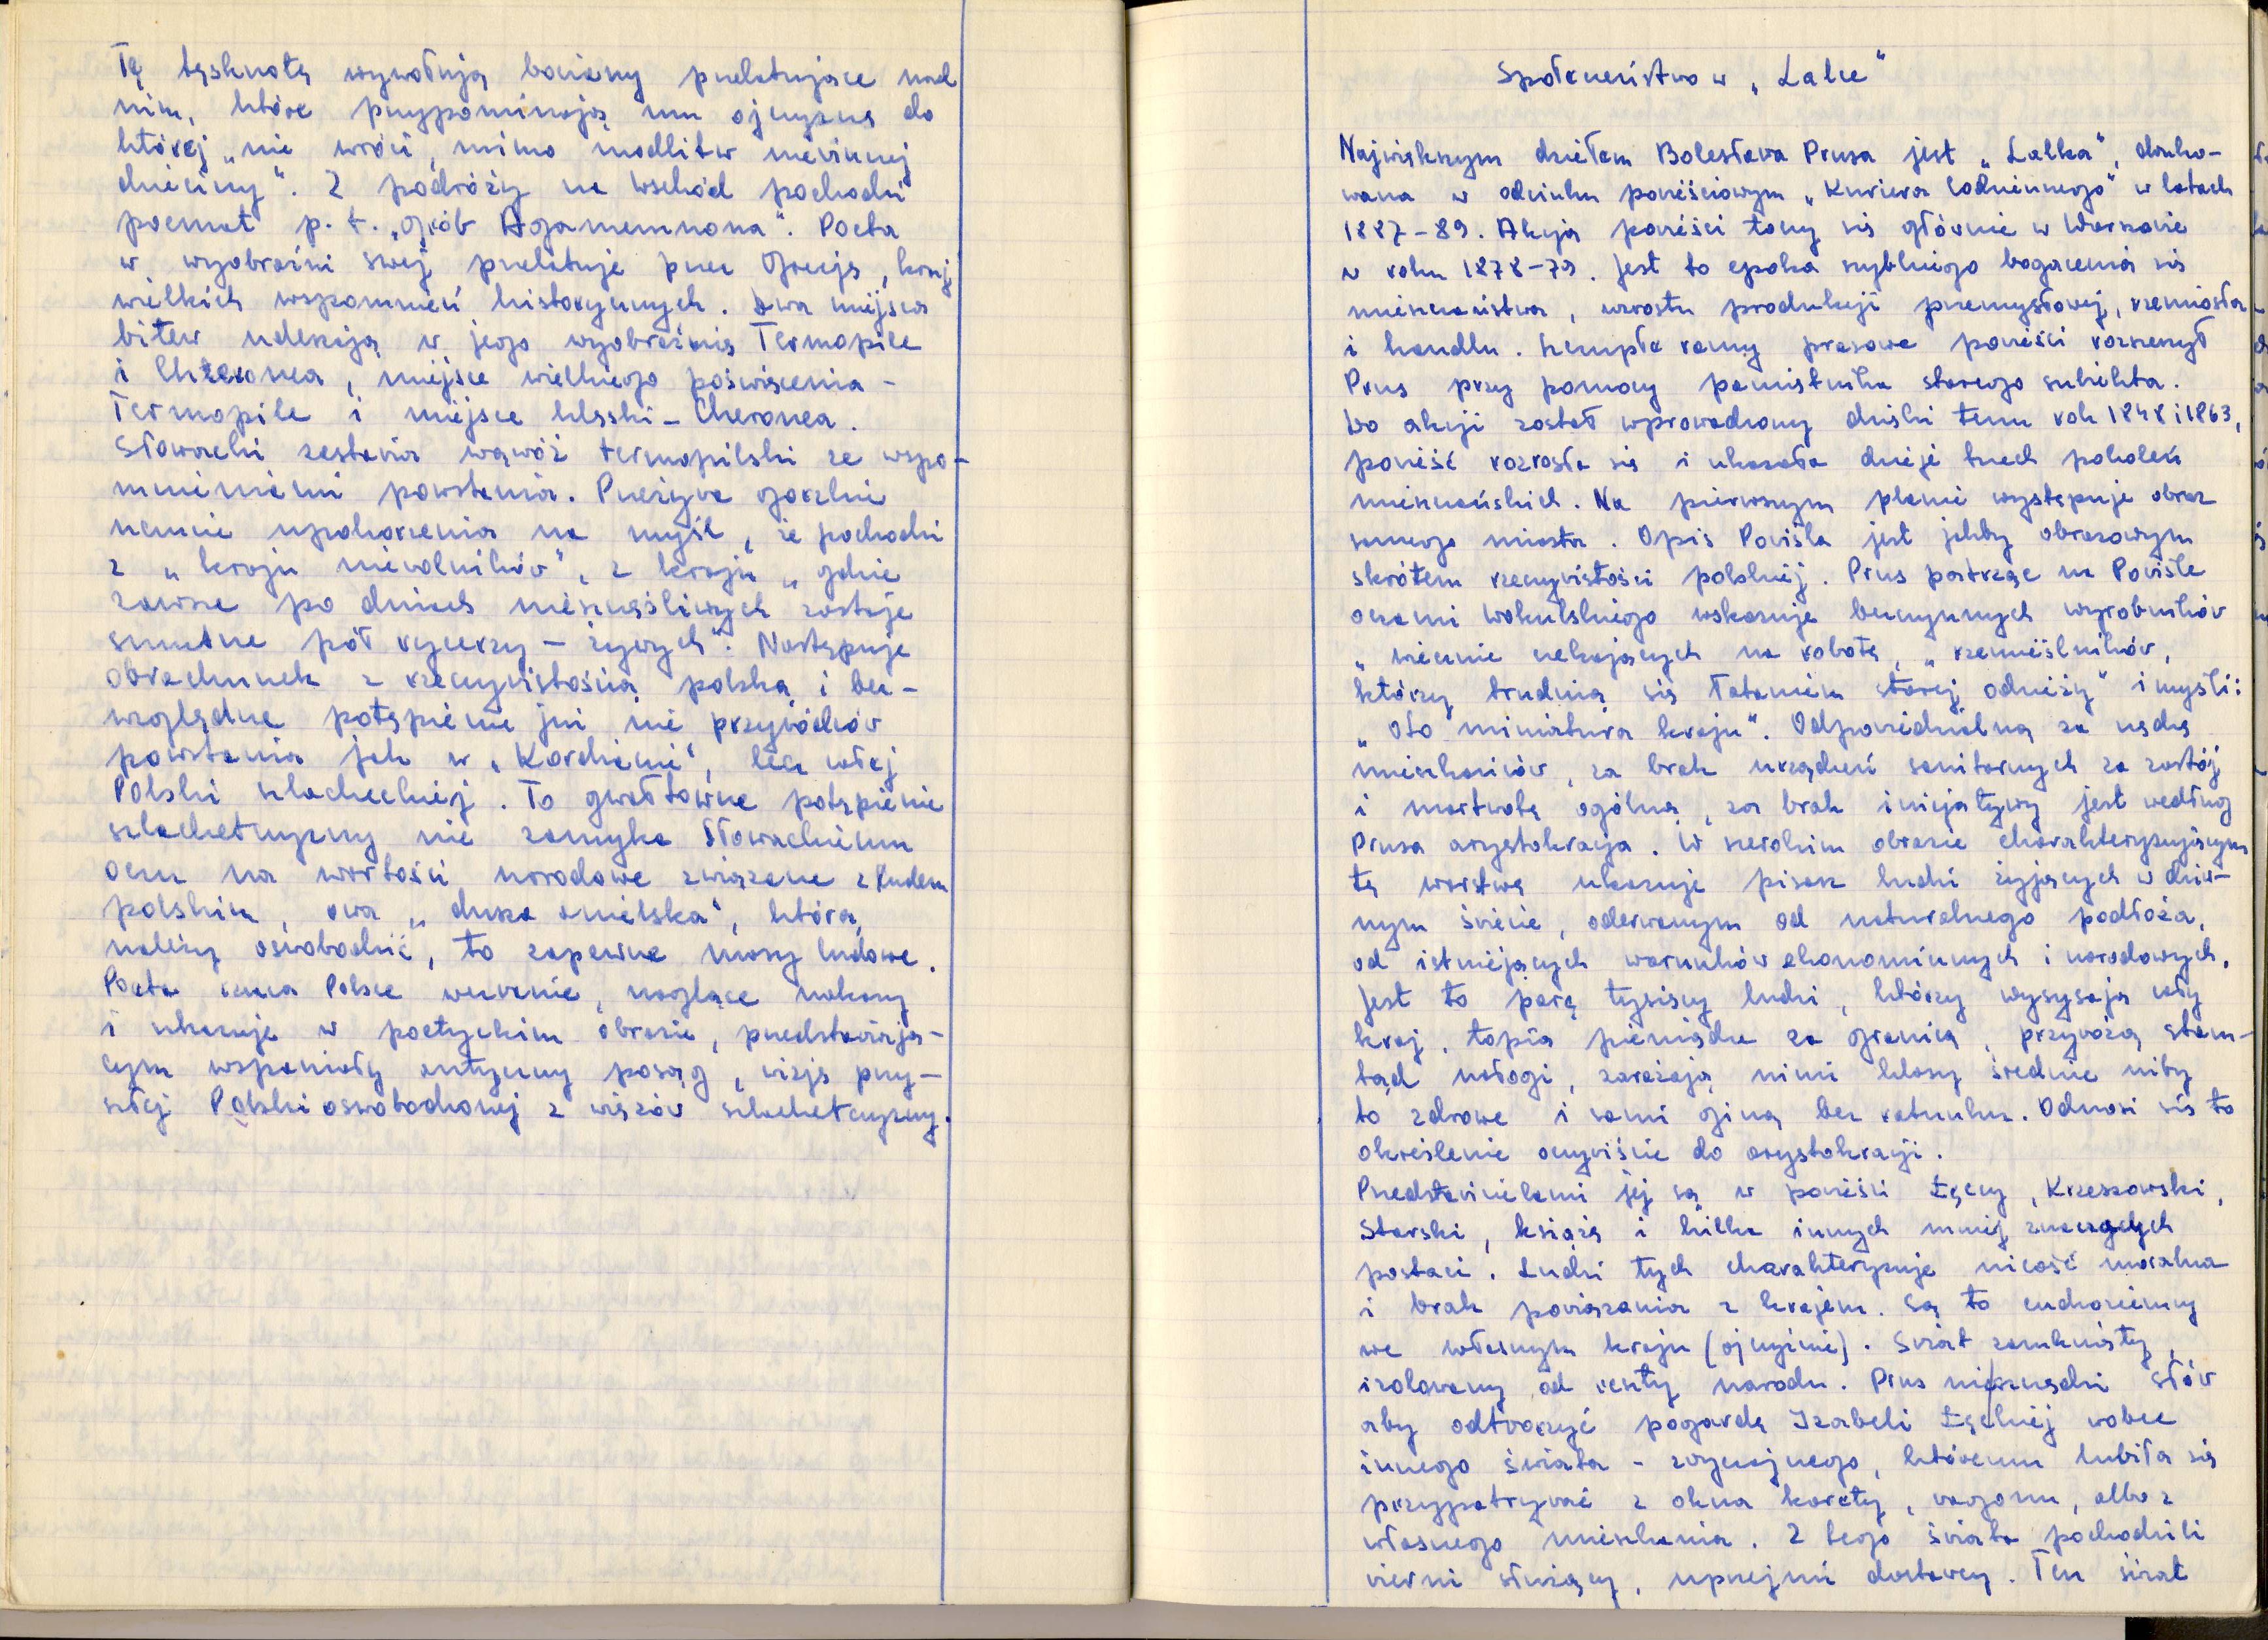 Tę tęsknotę wywołują bociany przelatujące nad
nim, które przypominają mu ojczyznę do
której „nie wróci, mimo modlitw niewinnej
dzieciny". Z podróży na Wschód pochodzi
poemat p.t. „Grób Agamemnona". Poeta
w wyobraźni swej przelatuje przez Grecję, kraj
wielkich wspomnień historycznych. Dwa miejsca
bitew uderzają w jego wyobraźnię Termopile
i Cheronea, miejsce wielkiego poświęcenia -
Termopile i miejsce klęski - Cheronea.
Słowacki zestawia wąwóz termopilski ze wspo-
mnieniami powstania. Przeżywa gorzkie
uczucie upokorzenia na myśl, że pochodzi
z „kraju niewolników", z kraju „gdzie
zawsze po dniach nieszczęśliwych zostaje
smutne pół rycerzy - żywych". Następuje
obrachunek z rzeczywistością polską i bez-
względne potępienie już nie przywódców
powstania jak w „Kordianie", lecz całej
Polski szlacheckiej. To gwałtowne potępienie
szlachetczyzny nie zamyka Słowackiemu
oczu na wartości narodowe związane z ludem
polskim, owa „dusza anielska", którą
należy oswobodzić, to zapewne masy ludowe.
Poeta rzuca Polsce wezwanie, naglące nakazy
i ukazuje w poetyckim obrazie, przedstawiają-
cym wspaniały antyczny posąg, wizję przy-
szłej Polski oswobodzonej z więzów szlachetczyzny.
Społeczeństwo w „Lalce"
Największym dziełem Bolesława Prusa jest „Lalka", druko-
wana w odcinku powieściowym „Kuriera Codziennego" w latach
1887-89. Akcja powieści toczy się głównie w Warszawie
w roku 1878-79. Jest to epoka szybkiego bogacenia się
mieszczaństwa, wzrostu produkcji przemysłowej, rzemiosła
i handlu. Szczupłe ramy prasowe powieści rozszerzył
Prus przy pomocy pamiętnika starego subiekta.
Do akcji został wprowadzony dzięki temu rok 1848 i 1863,
powieść rozrosła się i ukazała dzieje trzech pokoleń
mieszczańskich. Na pierwszym planie występuje obraz
samego miasta. Opis Powiśla jest jakby obrazowym
skrótem rzeczywistości polskiej. Prus patrząc na Powiśle
oczami Wokulskiego wskazuje bezczynnych wyrobników
„wiecznie czekających na robotę, „rzemieślników,
którzy trudnią się łataniem starej odzieży" i myśli:
„Oto miniatura kraju". Odpowiedzialną za nędzę
mieszkańców, za brak urządzeń sanitarnych za zastój
i martwotę ogólną, za brak inicjatywy jest według
Prusa arystokracja. W szerokim obrazie charakteryzującym
tę warstwę ukazuje pisarz ludzi żyjących w dziw-
nym świecie, oderwanym od naturalnego podłoża,
od istniejących warunków ekonomicznych i narodowych.
Jest to parę tysięcy ludzi, którzy wysysają cały
kraj, topią pieniądze za granicą, przywożą stam-
tąd nałogi, zarażają nimi klasy średnie niby
to zdrowe i sami giną bez ratunku. Odnosi się to
określenie oczywiście do arystokracji.
Przedstawicielami jej są w powieści Łęccy, Krzeszowski,
Starski, książę i kilka innych mniej znaczących
postaci. Ludzi tych charakteryzuje nicość moralna
i brak powiązania z krajem. Są to cudzoziemcy
we własnym kraju (ojczyźnie). Świat zamknięty,
izolowany od reszty narodu. Prus nie szczędzi słów
aby odtworzyć pogardę Izabeli Łęckiej wobec
innego świata - zwyczajnego, któremu lubiła się
przypatrywać z okna karety, wagonu, albo z
własnego mieszkania. Z tego świata pochodzili
wierni służący, uprzejmi dostawcy. Ten świat